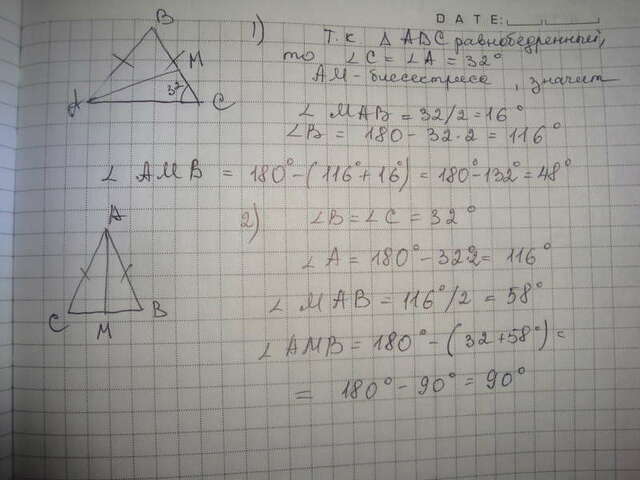 DATE:
1) Т.к △ ABC равнобедренный,
то ∠C = ∠A = 32°
AM - биссестриса, значит
∠ MAB = 32/2 = 16°
∠B = 180 - 32·2 = 116°
∠ AMB = 180° - (116° + 16°) = 180° - 132° = 48°
B
M
A
32°
C
2) ∠B = ∠C = 32°
∠A = 180° - 32·2 = 116°
∠ MAB = 116°/2 = 58°
∠ AMB = 180° - (32 + 58°) =
= 180° - 90° = 90°
A
C
B
M